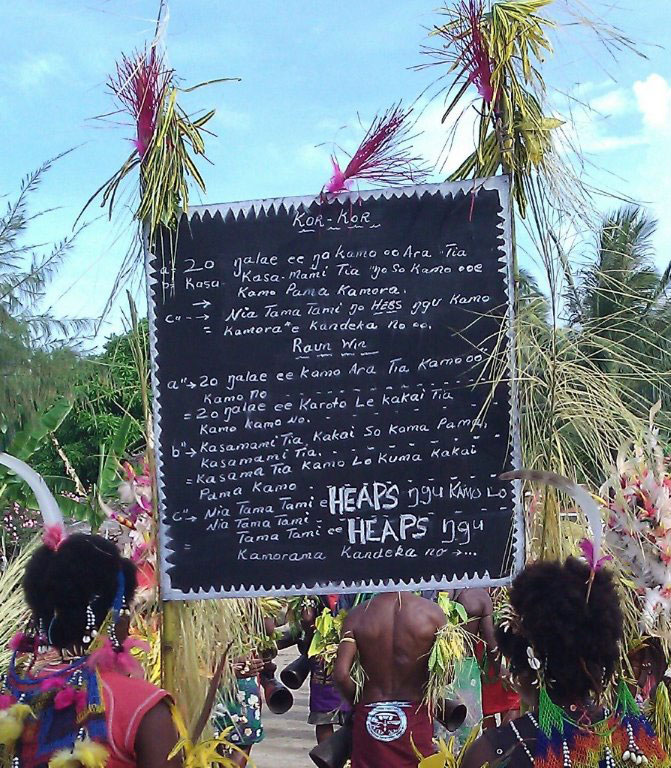 KOR-KOR
a = 20 ŋalae ee ŋa kamo oo Ara Tia
b = Kasa-Kasa-Mami Tia ŋo So Kamo ooe
Kamo Pama Kamora.
c" --→ Nia Tama Tami ŋo HEBS ŋgu Kamo
= Kamora*e Kandeka no oo.
Raun Win
a" → 20 ŋalae ee Kamo Ara Tia Kamo oo"
Kamo no
= 20 ŋalae ee Karoto Le kakai Tia
Kamo kamo No.
b" → Kasamami Tia Kakai So kama Pama.
Kasami Tia.
= Kasama Tia Kamo Lo Kuma Kakai
Pama Kamo
c" → Nia Tama Tami e HEAPS ŋgu KAMO LO
Nia Tama Tami
Tama Tami ee HEAPS ŋgu
= Kamorama Kandeka no →...